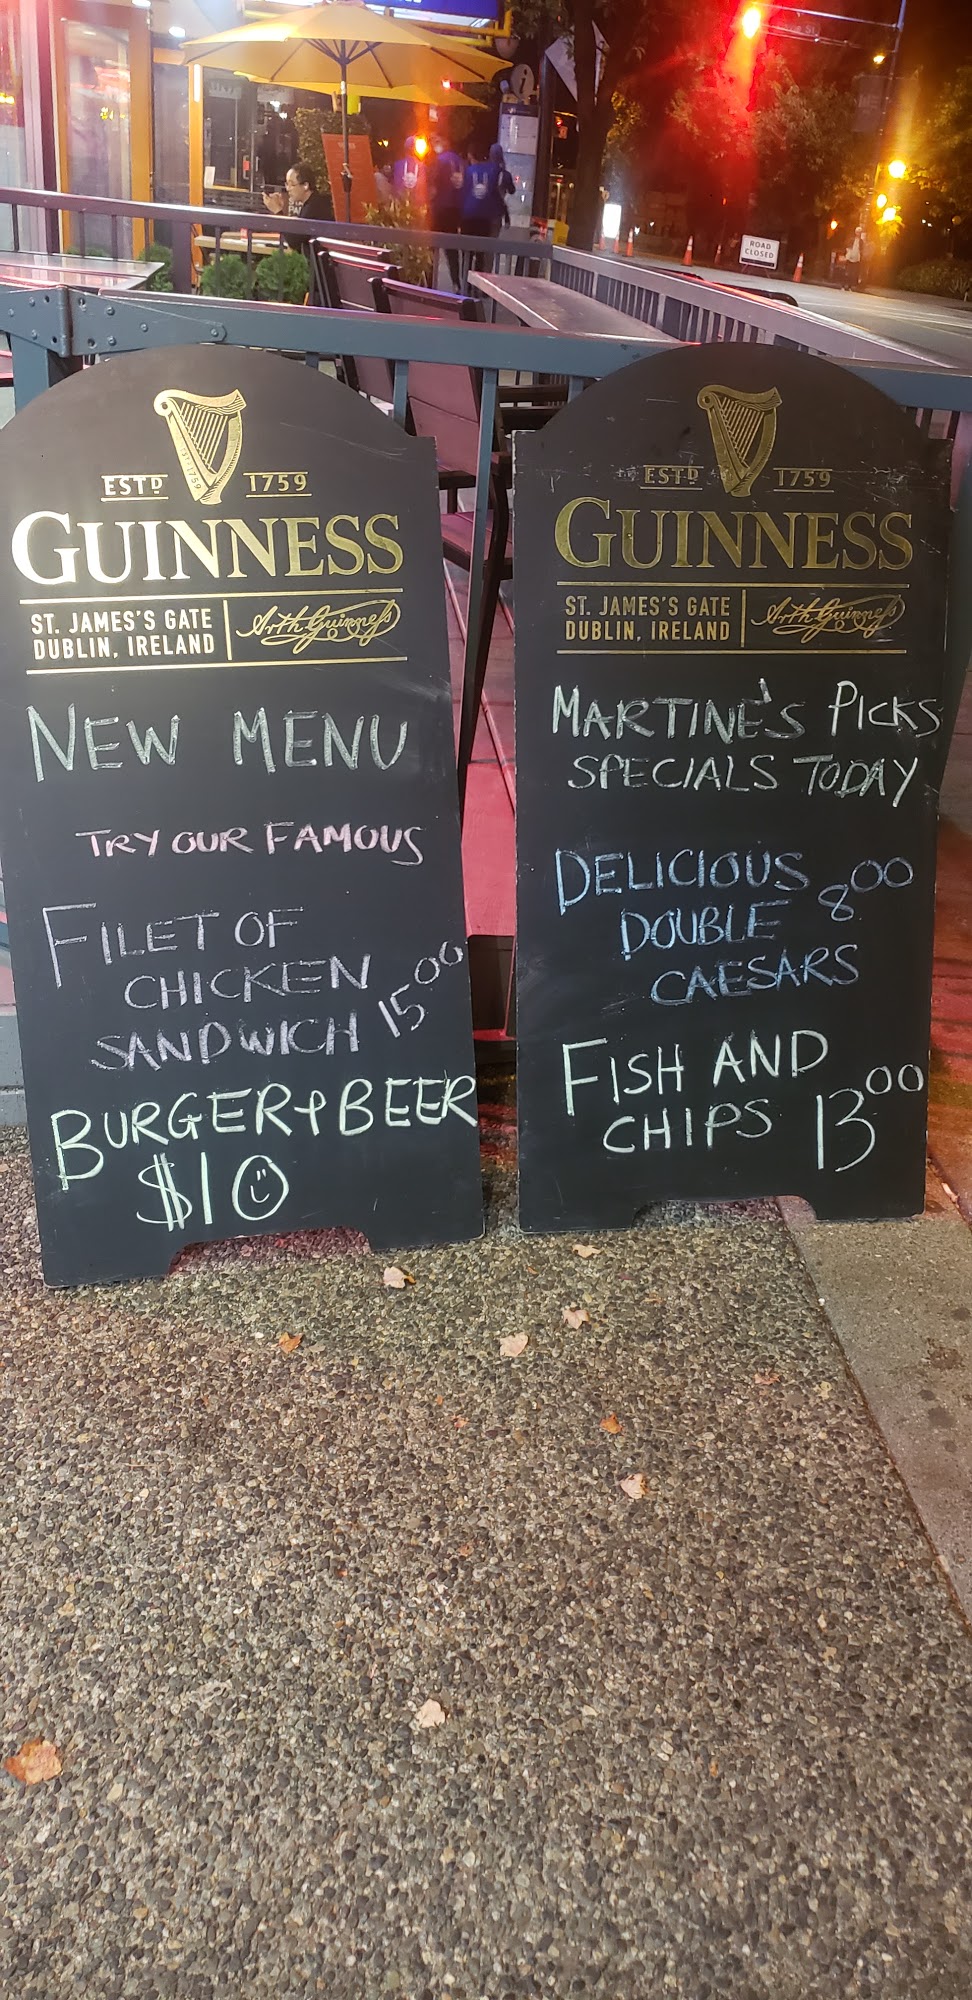 ROAD
CLOSED
ESTD 1759
GUINNESS
ST. JAMES'S GATE
DUBLIN, IRELAND
Arth Guinness
NEW MENU
TRY OUR FAMOUS
FILET OF
CHICKEN
SANDWICH 15.00
BURGER + BEER
$10
ESTD 1759
GUINNESS
ST. JAMES'S GATE
DUBLIN, IRELAND
Arth Guinness
MARTINE'S PICKS
SPECIALS TODAY
DELICIOUS 8.00
DOUBLE
CAESARS
FISH AND
CHIPS 13.00